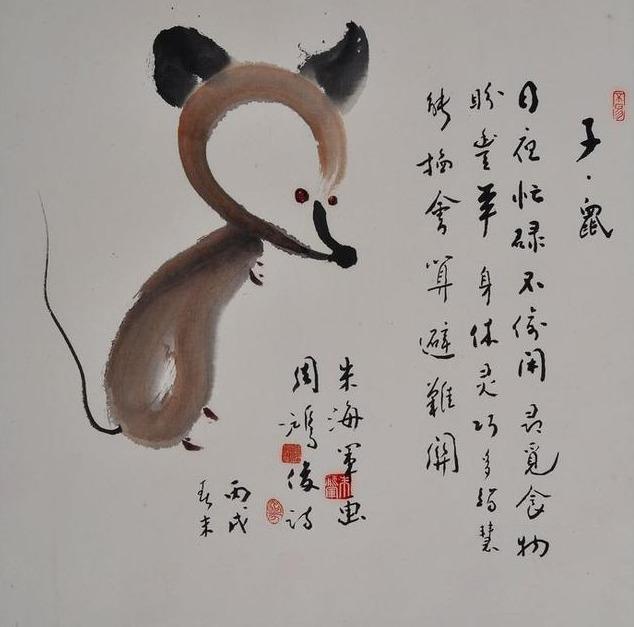 子·鼠
日夜忙碌不偷闲寻觅食物
盼豊年身体灵巧多智慧
能掐會算避難關
朱海軍画
周鴻俊诗
丙戌
春末